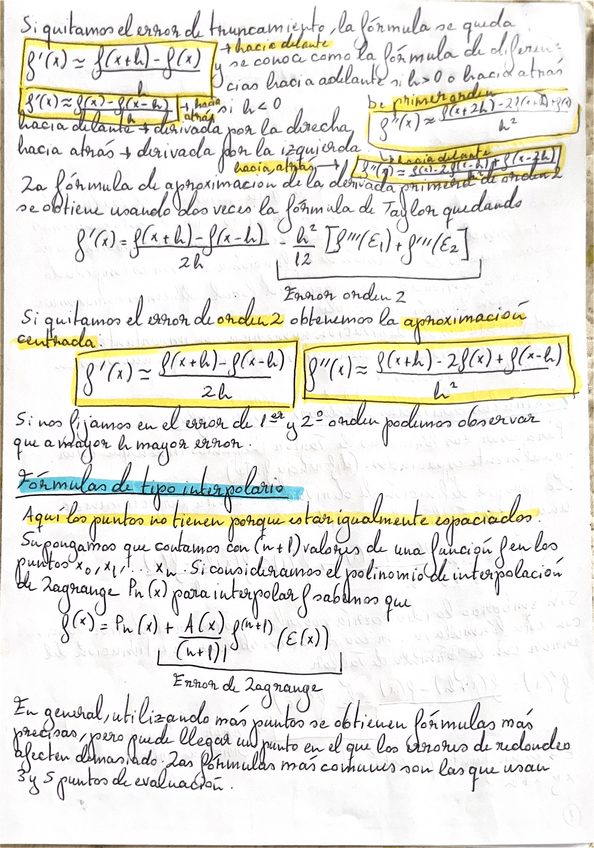 Si quitamos el error de truncamiento, la fórmula se queda
f'(x) ≃ f(x+h) - f(x) / h → hacia delante y se conoce como la fórmula de diferen-
cias hacia adelante si h>0 o hacia atrás
f'(x) ≃ f(x) - f(x-h) / h → hacia atrás si h<0
De primer orden
f''(x) ≃ f(x+2h) - 2f(x+h) + f(x) / h²
hacia delante → derivada por la derecha
hacia atrás → derivada por la izquierda
hacia atrás → f''(x) ≃ f(x) - 2f(x-h) + f(x-2h) / h²
↳ hacia delante
La fórmula de aproximación de la derivada primera de orden 2
se obtiene usando dos veces la fórmula de Taylor quedando
f'(x) = f(x+h) - f(x-h) / 2h - h²/12 [f'''(ε₁) + f'''(ε₂)]
Error orden 2
Si quitamos el error de orden 2 obtenemos la aproximación
centrada:
f'(x) ≃ f(x+h) - f(x-h) / 2h f''(x) ≃ f(x+h) - 2f(x) + f(x-h) / h²
Si nos fijamos en el error de 1er y 2º orden podemos observar
que a mayor h mayor error.
Fórmulas de tipo interpolario
Aquí los puntos no tienen porque estar igualmente espaciados.
Supongamos que contamos con (n+1) valores de una función f en los
puntos x₀, x₁, ... xₙ. Si consideramos el polinomio de interpolación
de Lagrange Pₙ(x) para interpolar f sabemos que
f(x) = Pₙ(x) + A(x) / (n+1)! f⁽ⁿ⁺¹⁾(ε(x))
Error de Lagrange
En general, utilizando más puntos se obtienen fórmulas más
precisas, pero puede llegar un punto en el que los errores de redondeo
afecten demasiado. Las fórmulas más comunes son las que usan
3 y 5 puntos de evaluación.